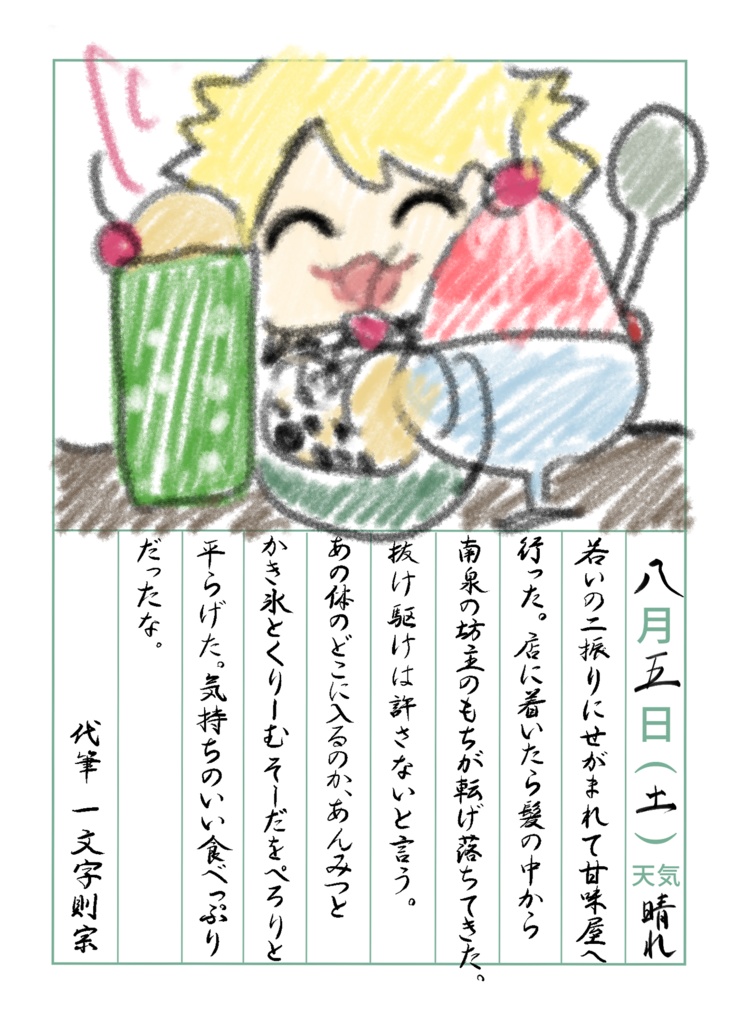 八月五日(土) 天気 晴れ
若いの二振りにせがまれて甘味屋へ
行った。店に着いたら髪の中から
南泉の坊主のもちが転げ落ちてきた。
抜け駆けは許さないと言う。
あの体のどこに入るのか、あんみつと
かき氷とくりーむそーだをぺろりと
平らげた。気持ちのいい食べっぷり
だったな。
代筆 一文字則宗